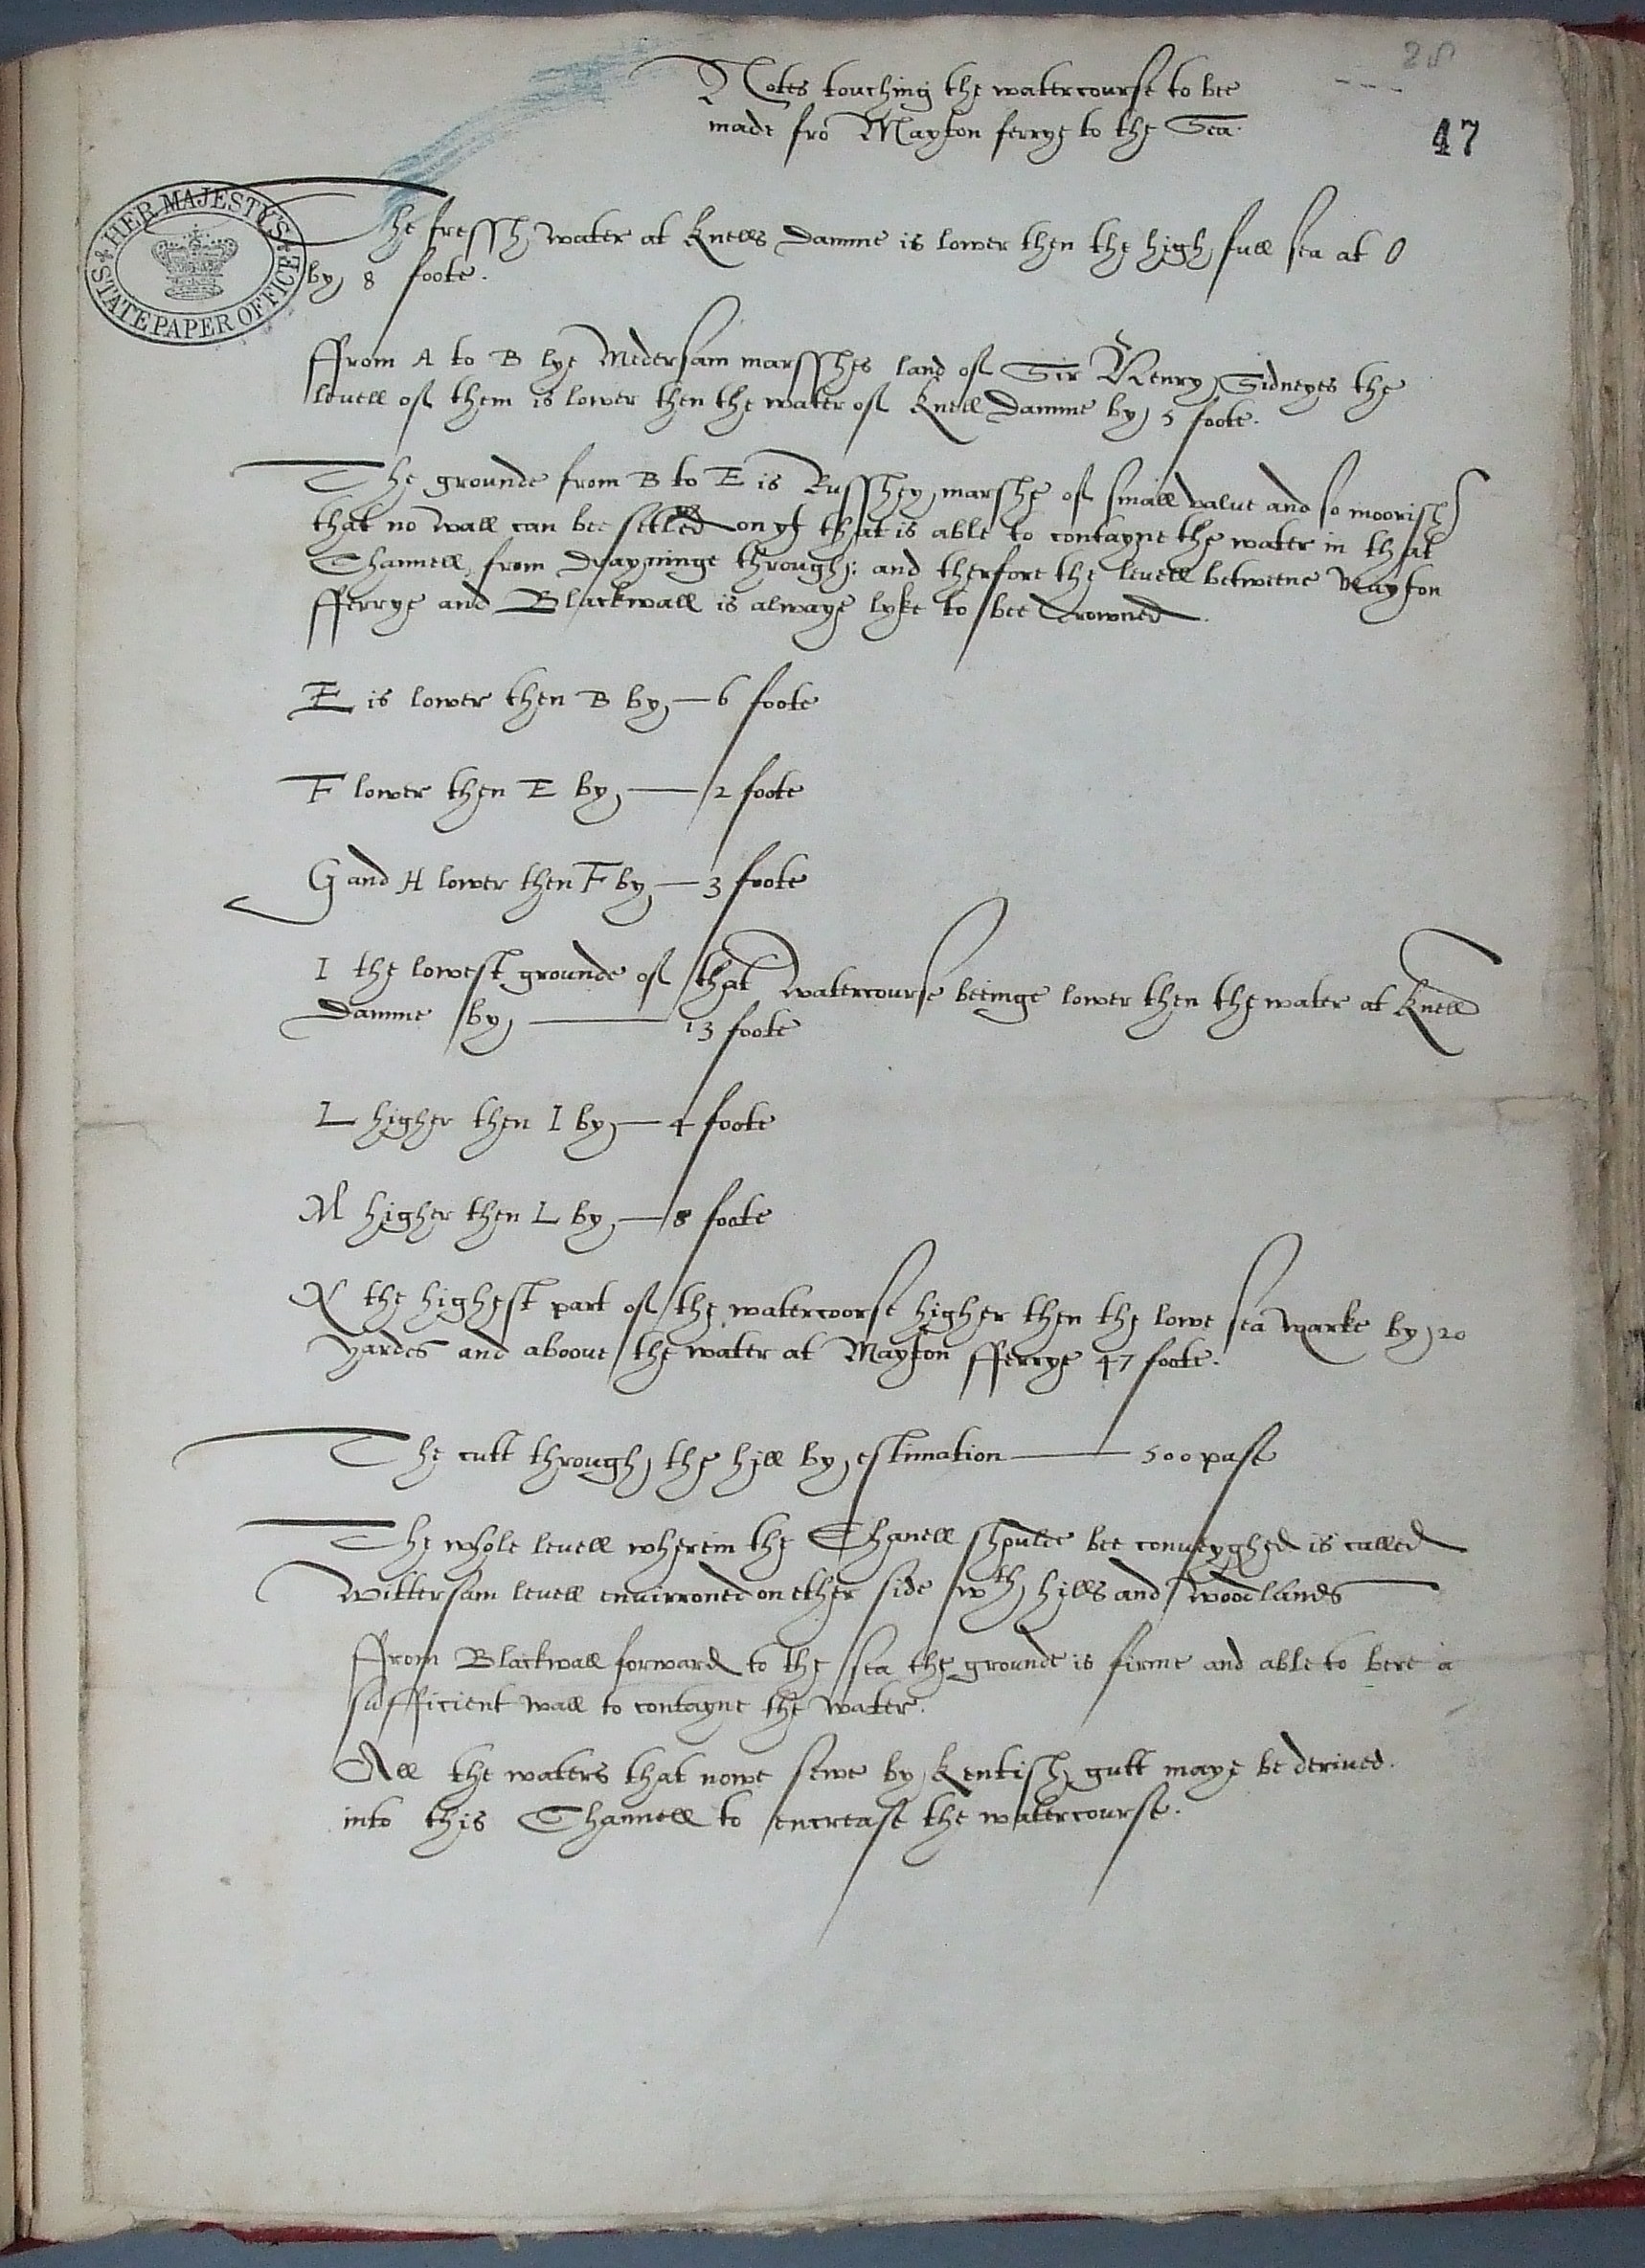 28
47
Notes touching the watercourse to bee
made frō Mayton ferrye to the Sea.
HER MAJESTY'S
STATE PAPER OFFICE
The fressh water at Knells Damme is lower then the high full sea at O
by 8 foote.
ffrom A to B lye Medersam marsshes land of Sir Henry Sidneyes the
leuell of them is lower then the water of Knell Damme by 5 foote.
The grounde from B to E is Russhey marshe of small value and so moorish
that no wall can bee setled on yt that is able to contayne the water in that
Channell from Drayninge through: and therfore the leuell betweene Mayton
fferrye and Blackwall is alwaye lyke to bee Drowned.
E is lower then B by — 6 foote
F lower then E by — 2 foote
G and H lower then F by — 3 foote
I the lowest grounde of that watercourse beeinge lower then the water at Knell
Damme by — 13 foote
L higher then I by — 4 foote
M higher then L by — 8 foote
N the highest part of the watercoorse higher then the lowe sea marke by 20
yardes and aboue the water at Mayton fferrye 47 foote.
The cutt through the hyll by estimation — 500 pase
The whole leuell wherein the Chanell shoulde bee conueyghed is called
Wittersam leuell enuirroned on ether side wth hylls and woodlands
ffrom Blackwall forward to the sea the grounde is firme and able to bere a
sufficient wall to contayne the water.
All the waters that nowe sewe by Kentish gutt maye be deriued.
into this Channell to encrease the watercourse.